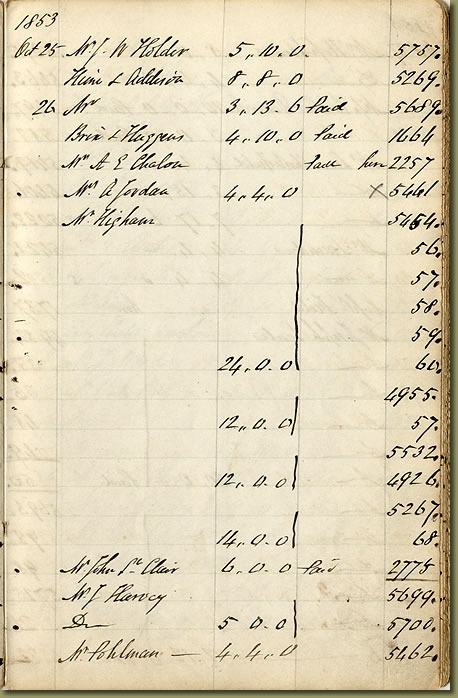 1853
Oct 25 Mr J. W Holder 5,, 10,, 0 5757.
Heine & Addison 8,, 8,, 0 5269.
26 Mr 3,, 13,, 6 Paid 5689.
Brix & Huggens 4,, 10,, 0 Paid 1664
Mr A E Chalon 2257
A Jordan 4,, 4,, 0 X 5461
Mr Higham 5454.
56.
57.
58.
59.
24,, 0,, 0 60.
4955.
12,, 0,, 0 57.
5532.
12,, 0,, 0 4926.
5267.
14,, 0,, 0 68.
Mr John St Clair 6,, 0,, 0 Paid 2775
Mr J Harvey 5699.
Do 5 0,, 0 5700.
Mr Pohlman — 4,, 4,, 0 5462.